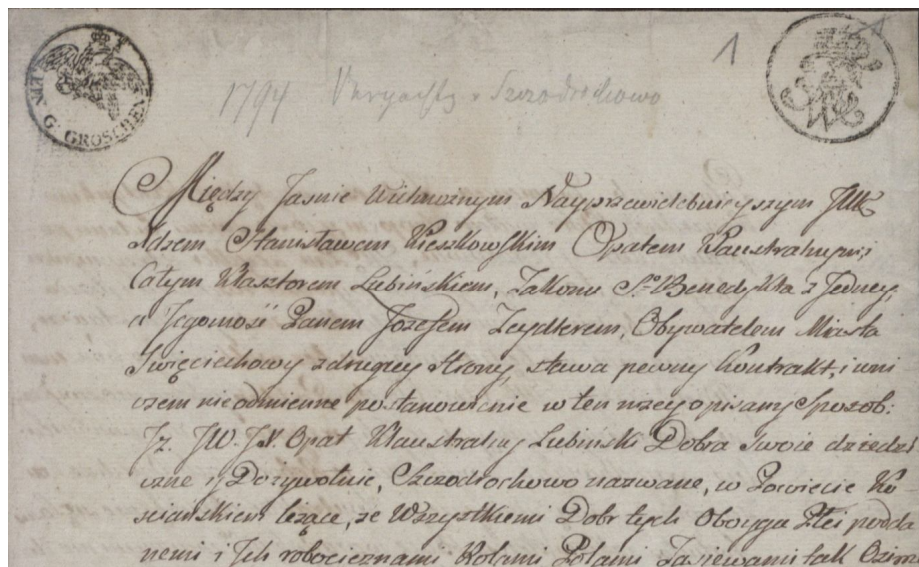 G. GROSCHEN
1
1794 Szczodrochowo
Między Jasnie Wielmożnym Nayprzewielebnieyszym JMX
dzem Stanisławem Kieszkowskim Opatem Klaustralnym, i
Całym Klasztorem Lubińskiem, Zakonu Sº Benedykta z Jedney,
a Jegomość Panem Jozefem Zeydlerem, Obywatelem Miasta
Swięciechowy z drugiey strony, stawa pewny Kontrakt, i w ni
czem nieodmienne postanowienie w ten nizey opisany Sposob:
Jż JW. JX. Opat Klaustralny Lubinski Dobra Swoie dziedzi
czne y Dozywotnie, Szczodrochowo nazwane, w Powiecie Ko
sciańskiem leżące, ze Wszystkiemi Dobr tych Oboyga Płci podda
nemi i Jch robociznami Rolami Polami Zasiewami tak Ozim